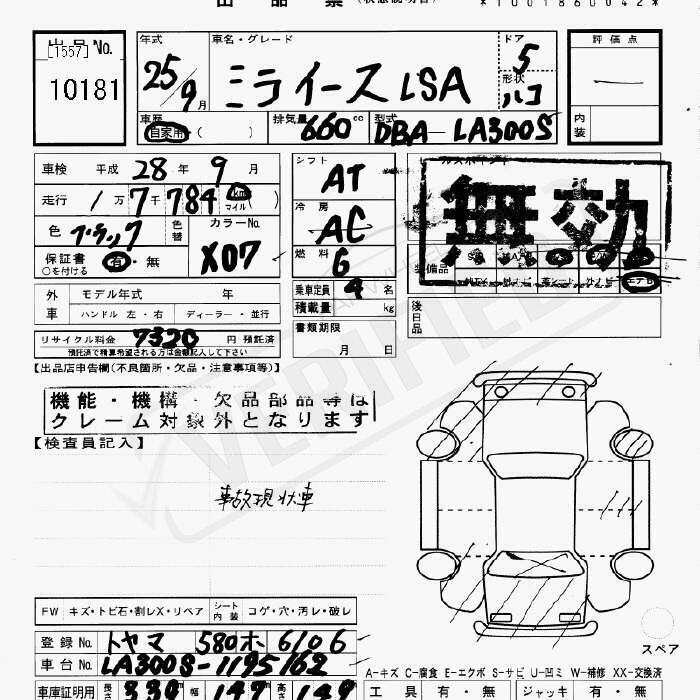 *1001860042*
出品No.
[1557]
10181
年式
25 9月
車名・グレード
ミライース LSA
ドア
5
形状
ハコ
評価点
—
内装
車歴
自家用・( )
排気量
660cc
型式
DBA LA300S
車検 平成 28年 9月
走行 1万 7千 784 km マイル ( )
色 ブラック
色替
カラーNo.
X07
保証書 有・無
○を付ける
シフト
AT
冷房
AC
燃料
G
乗車定員 4 名
積載量 kg
書類期限
月 日
無効
装備品
後日品
外車
モデル年式 年
ハンドル 左・右 ディーラー・並行
リサイクル料金 7320 円 預託済
預託済で精算希望される方は金額記入して下さい
【出品店申告欄(不良箇所・欠品・注意事項等)】
機能・機構・欠品部品等は
クレーム対象外となります
【検査員記入】
事故現状車
FW キズ・トビ石・割レX・リペア シート内装 コゲ・穴・汚レ・破レ
登録No. トヤマ 580 ホ 6106
車台No. LA300S-1195162
車庫証明用 長さ 339 幅 147 高さ 149
スペア
A-キズ C-腐食 E-エクボ S-サビ U-凹ミ W-補修 XX-交換済
工具 有・無 ジャッキ 有・無
VERIFIED